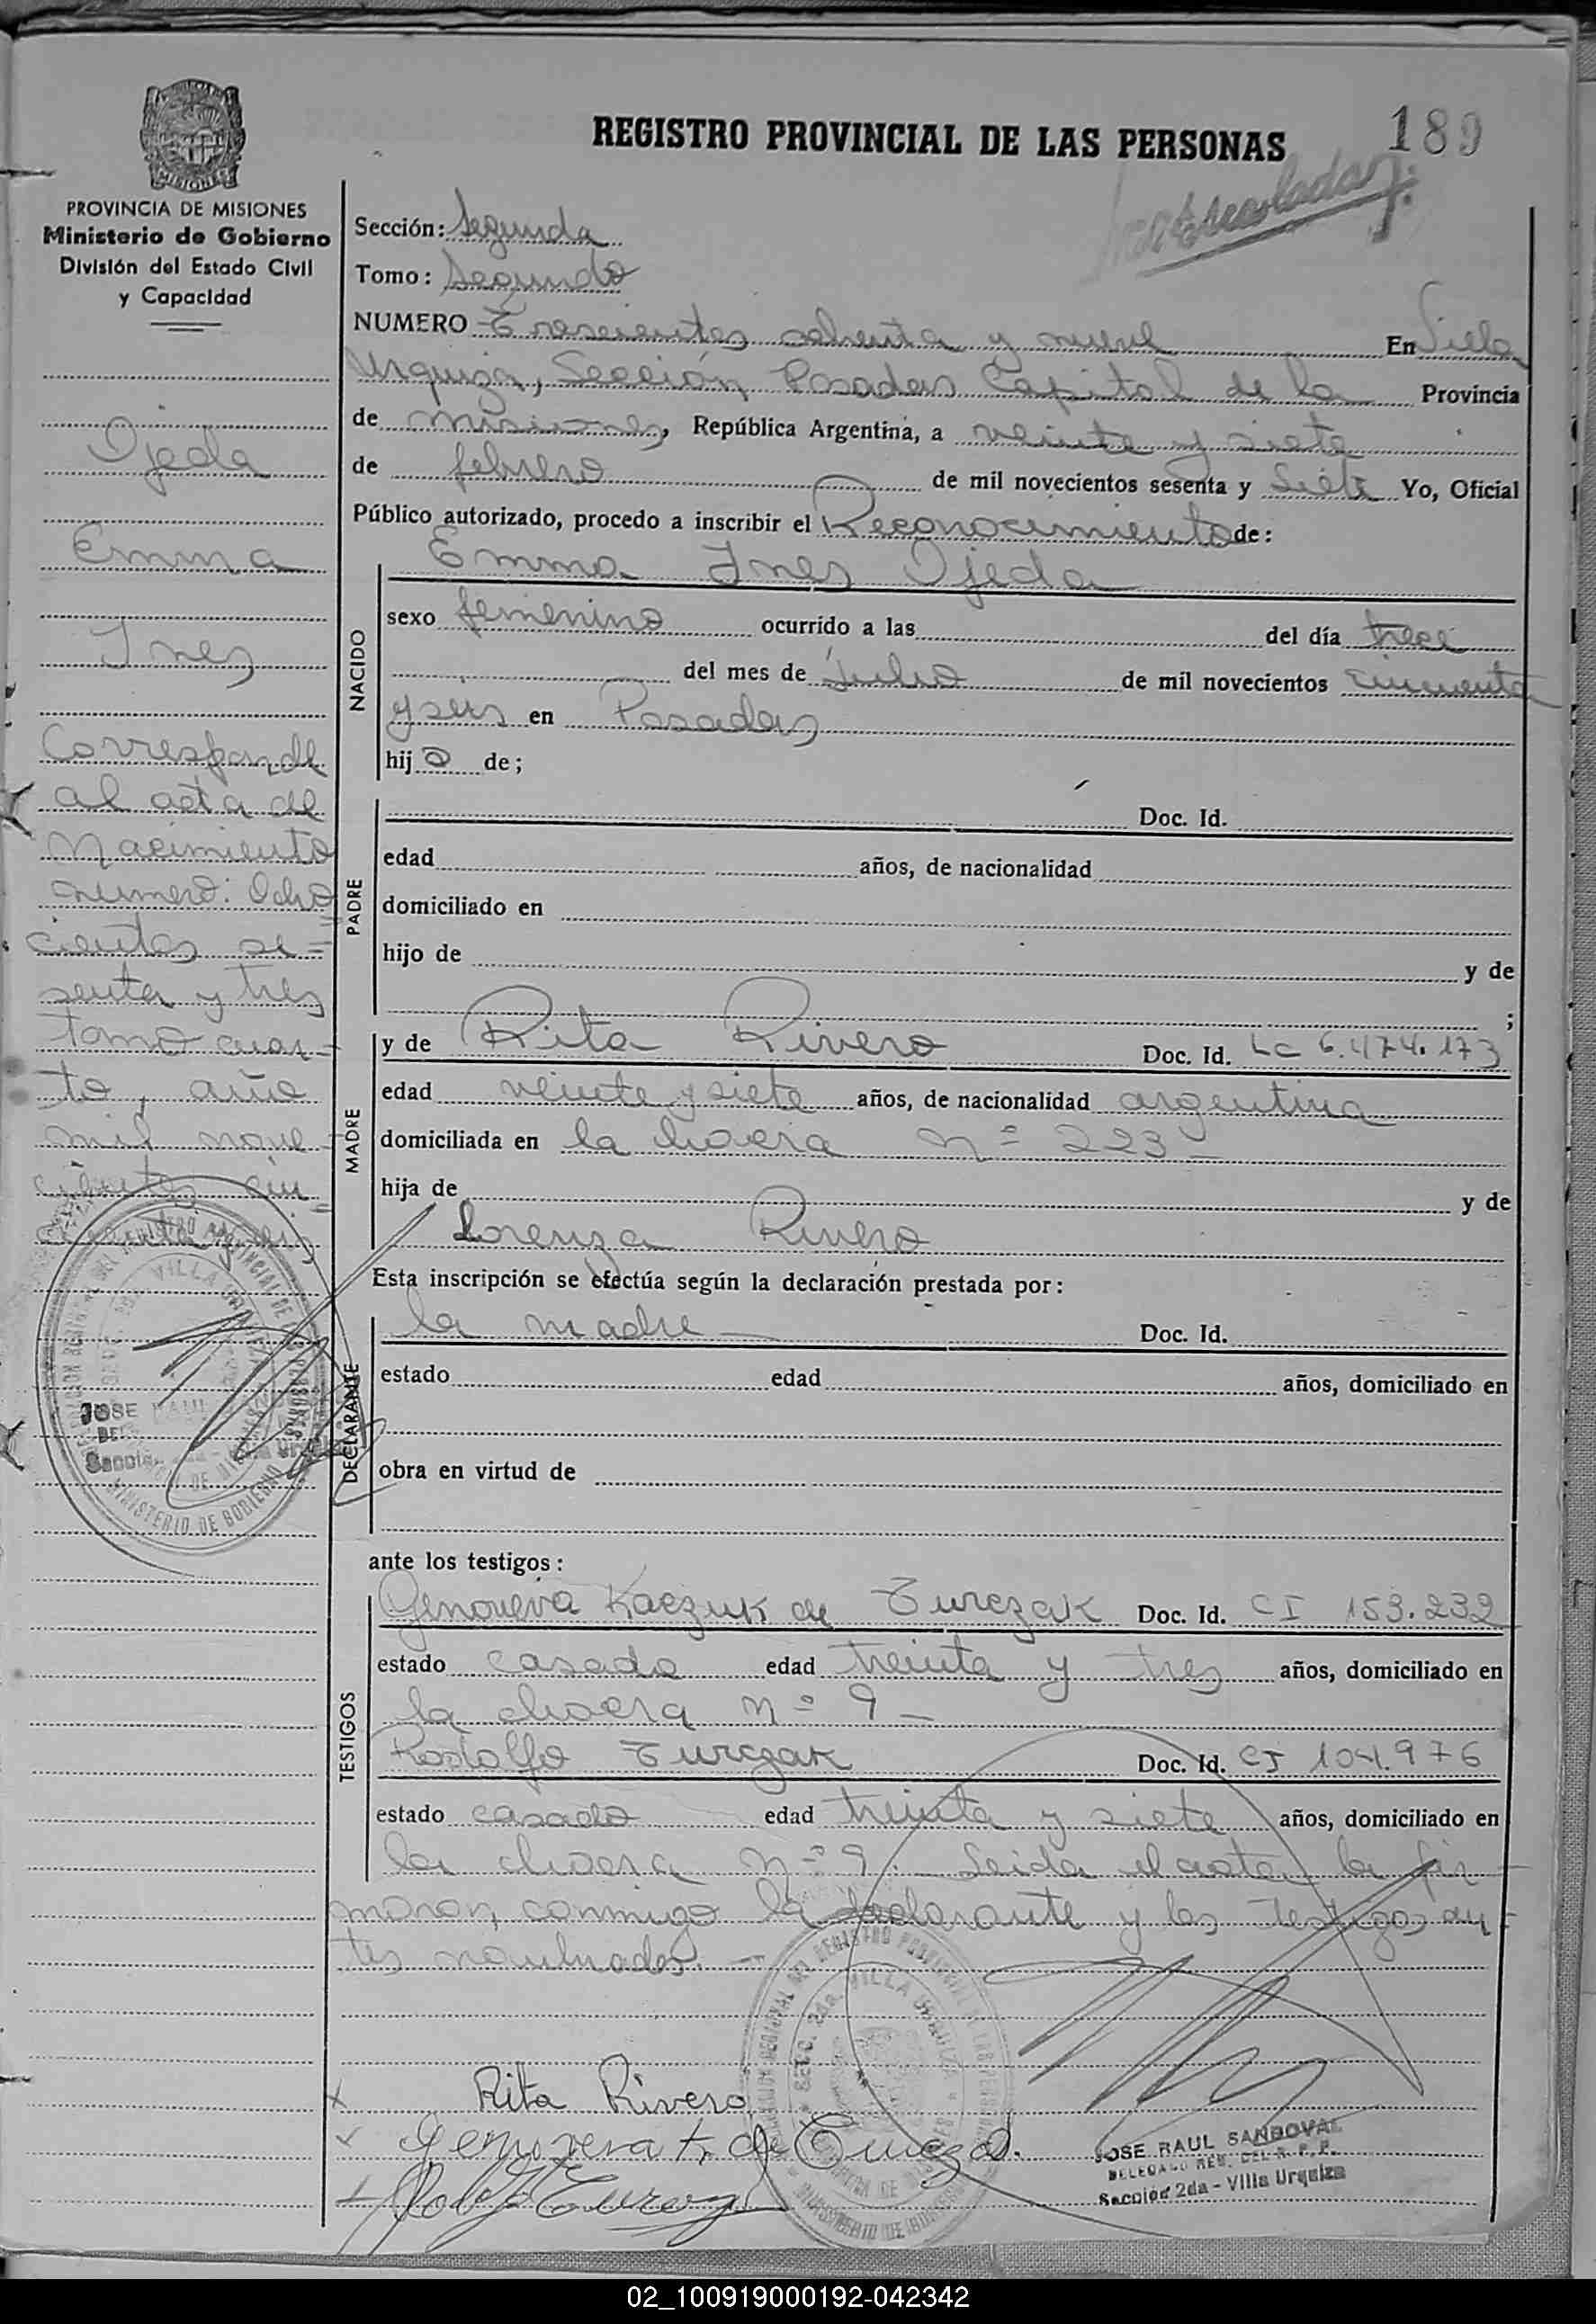 REGISTRO PROVINCIAL DE LAS PERSONAS
189
MISIONES
PROVINCIA DE MISIONES
Ministerio de Gobierno
División del Estado Civil
y Capacidad
Ojeda
Emma
Ines
Corresponde
al acta de
Nacimiento
numero: Ocho
cientos se=
senta y tres
tomo cuar=
to, año
mil nove
cientos cin=
cuenta y seis
Sección: Segunda
Tomo: Segundo
NUMERO Trescientos ochenta y nueve En Villa
Urquiza, Sección Posadas Capital de la Provincia
de Misiones, República Argentina, a veinte y siete
de febrero de mil novecientos sesenta y Siete Yo, Oficial
Público autorizado, procedo a inscribir el Reconocimiento de:
NACIDO
Emma Ines Ojeda
sexo femenino ocurrido a las del día trece
del mes de Julio de mil novecientos cincuenta
y seis en Posadas
hija de;
PADRE
Doc. Id.
edad años, de nacionalidad
domiciliado en
hijo de y de
;
MADRE
y de Rita Rivero Doc. Id. LC 6.474.173
edad veinte y siete años, de nacionalidad argentina
domiciliada en la chacra Nº 223
hija de y de
Lorenza Rivero
Esta inscripción se efectúa según la declaración prestada por:
DECLARANTE
la madre Doc. Id.
estado edad años, domiciliado en
obra en virtud de
ante los testigos:
TESTIGOS
Genoveva Kaczuk de Turczak Doc. Id. CI 153.232
estado casada edad treinta y tres años, domiciliado en
la chacra nº 9
Rodolfo Turczak Doc. Id. CI 104.976
estado casado edad treinta y siete años, domiciliado en
la chacra nº 9. Leida el acta, la fir
maron conmigo la declarante y los testigos an=
tes nombrados.
Rita Rivero
JOSE RAUL SANDOVAL
DELEGADO REG. DEL R. P. P.
Sección 2da - Villa Urquiza
02_100919000192-042342